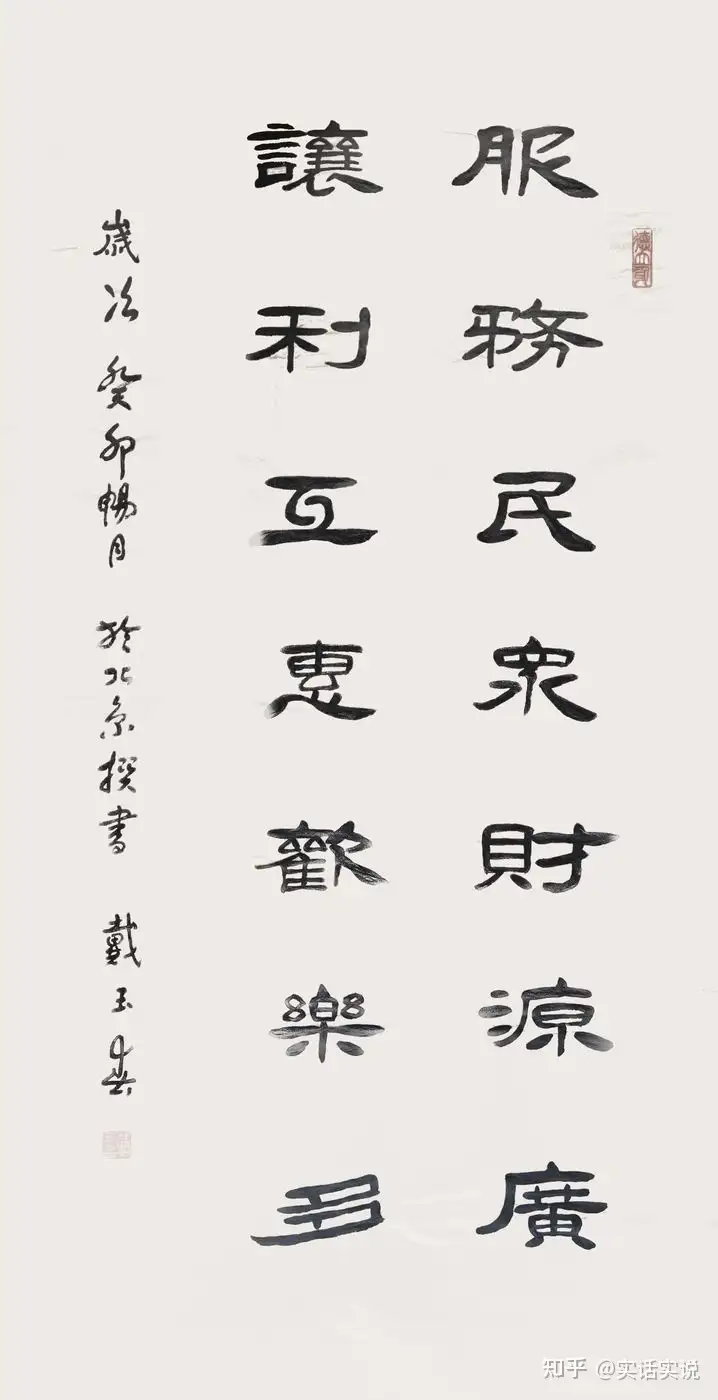 服務民衆財源廣
讓利互惠歡樂多
歲次癸卯暢月於北京撰書戴玉春
知乎 @实话实说